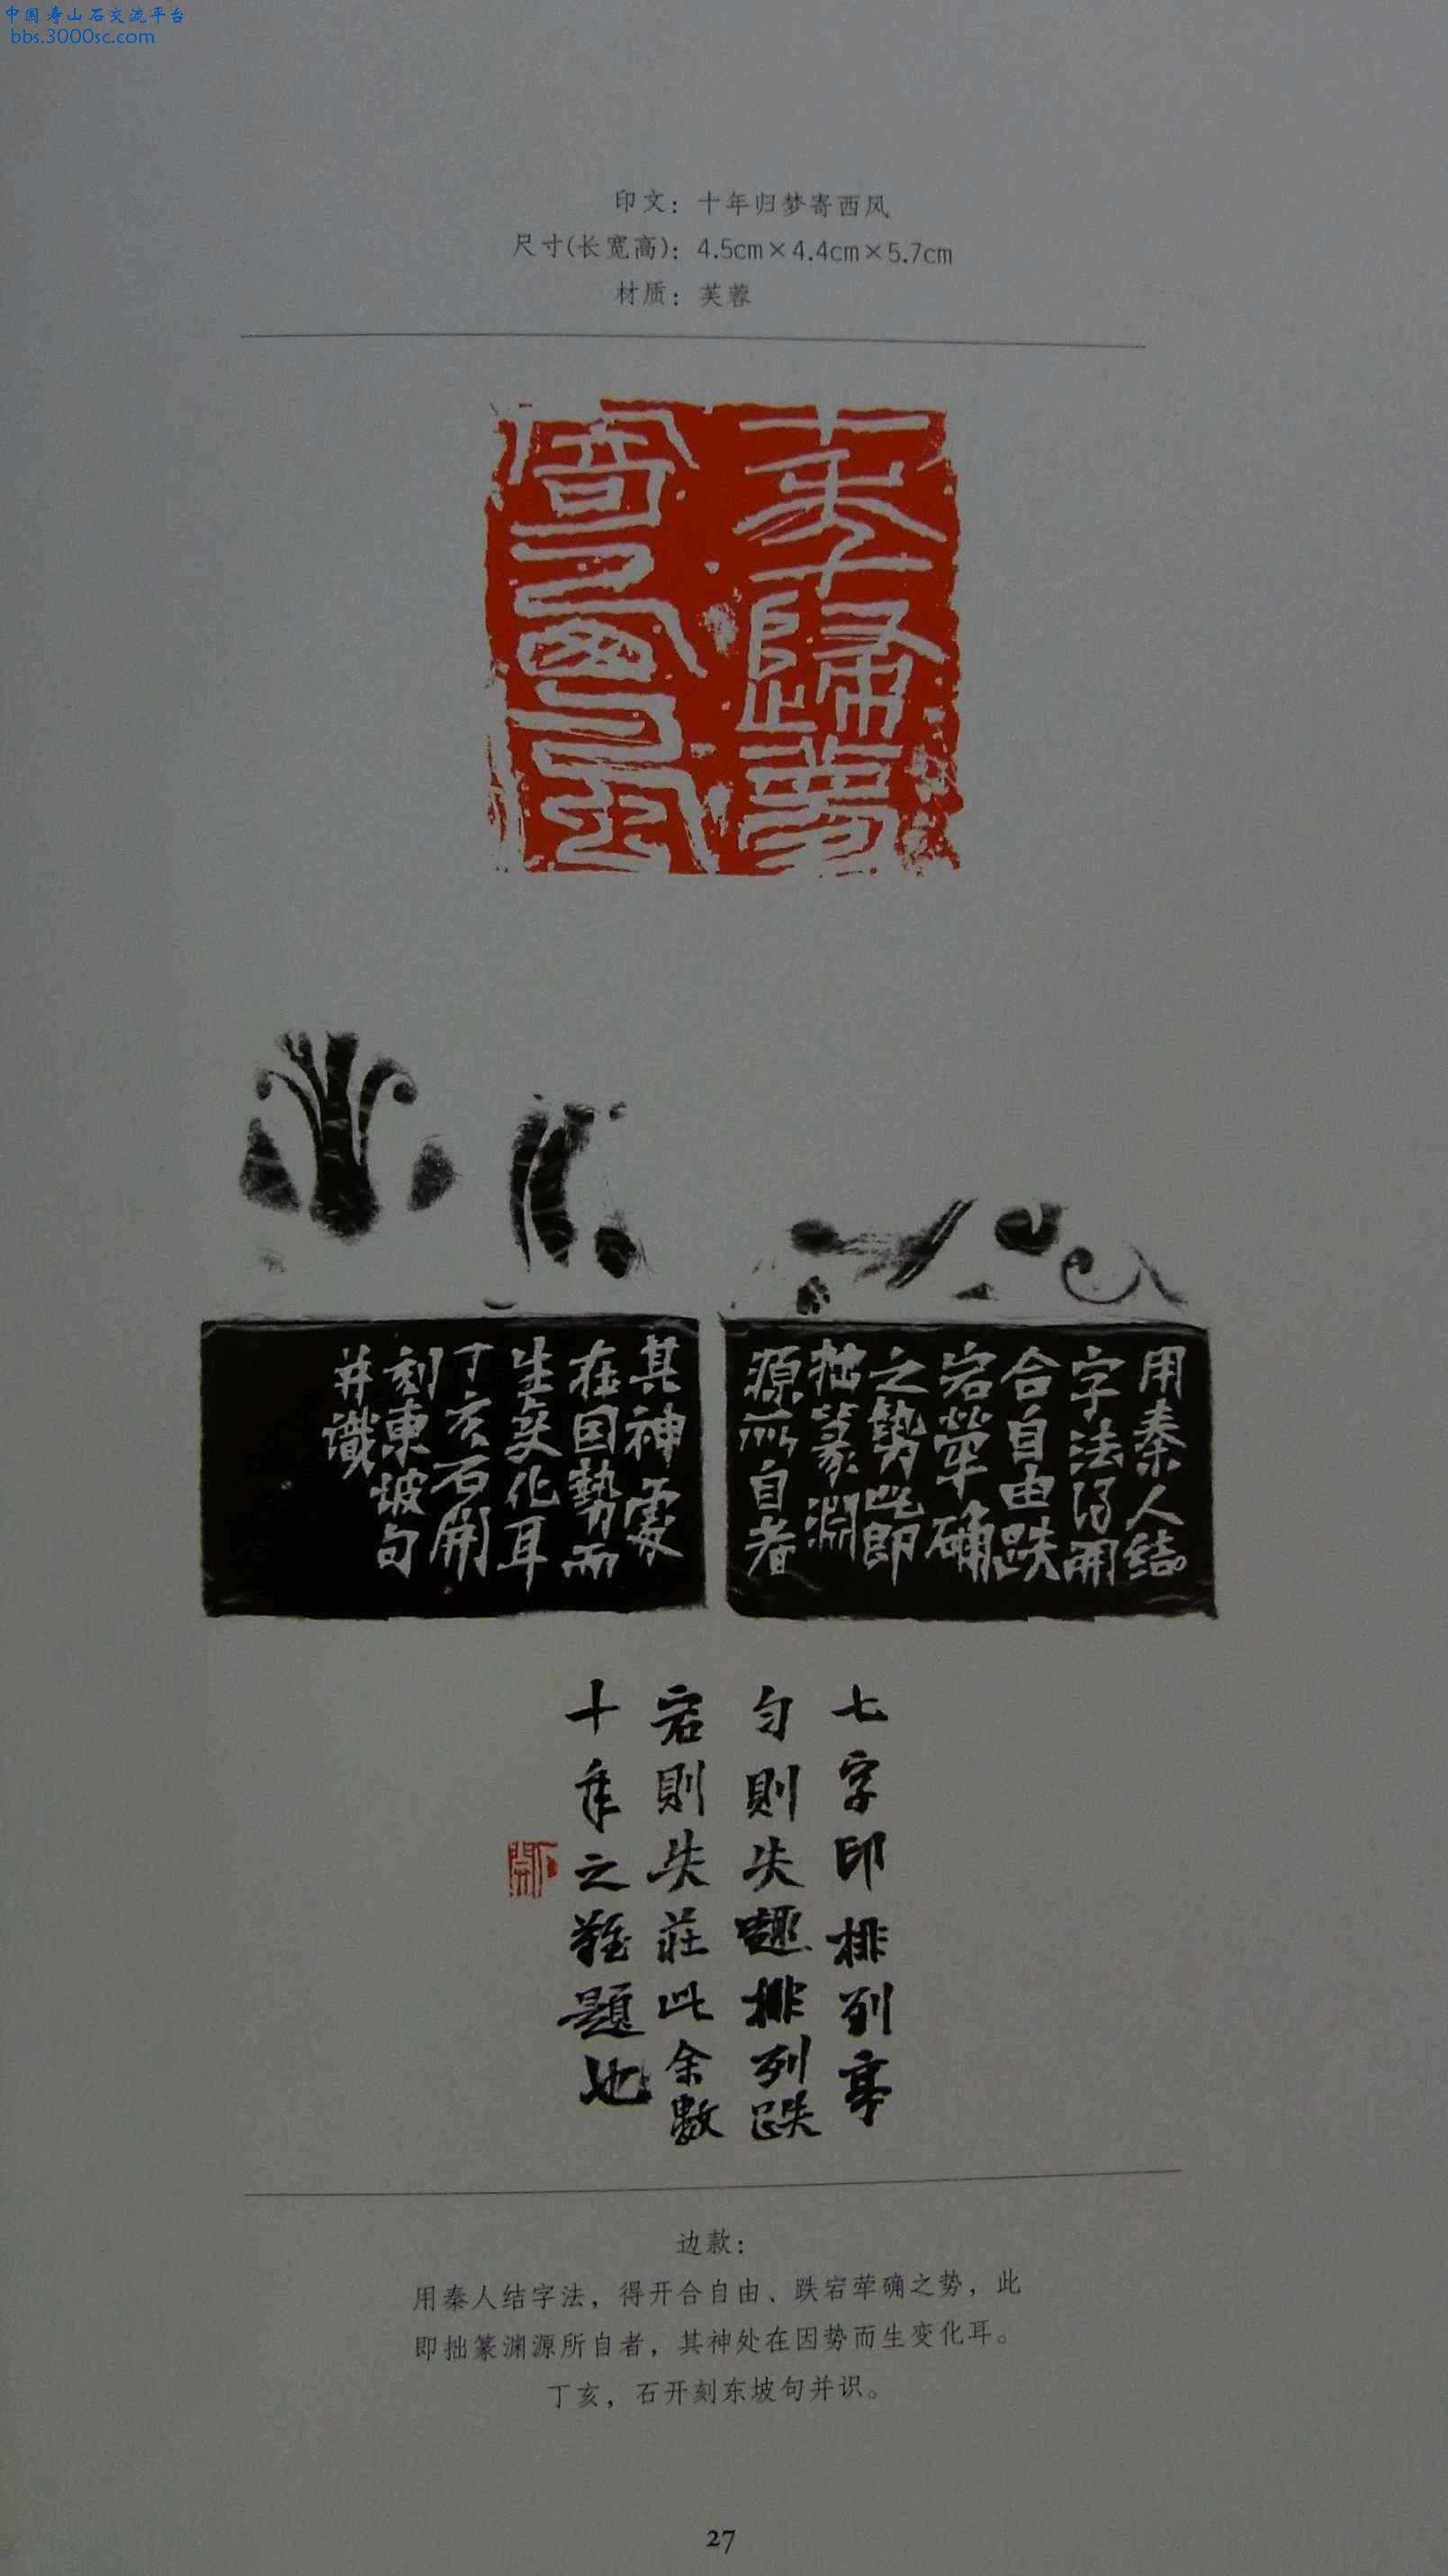 中国寿山石交流平台
bbs.3000sc.com
印文：十年归梦寄西风
尺寸(长宽高)：4.5cm×4.4cm×5.7cm
材质：芙蓉
十年歸夢
寄西風
用秦人結
字法得開
合自由跌
宕犖确
之勢此即
拙篆淵
源所自者
其神處
在因勢而
生變化耳
丁亥石開
刻東坡句
并識
七字印排列亭
匀則失趣排列跌
宕則失莊此余數
十年之難題也
石開
边款：
用秦人结字法，得开合自由、跌宕荦确之势，此
即拙篆渊源所自者，其神处在因势而生变化耳。
丁亥，石开刻东坡句并识。
27